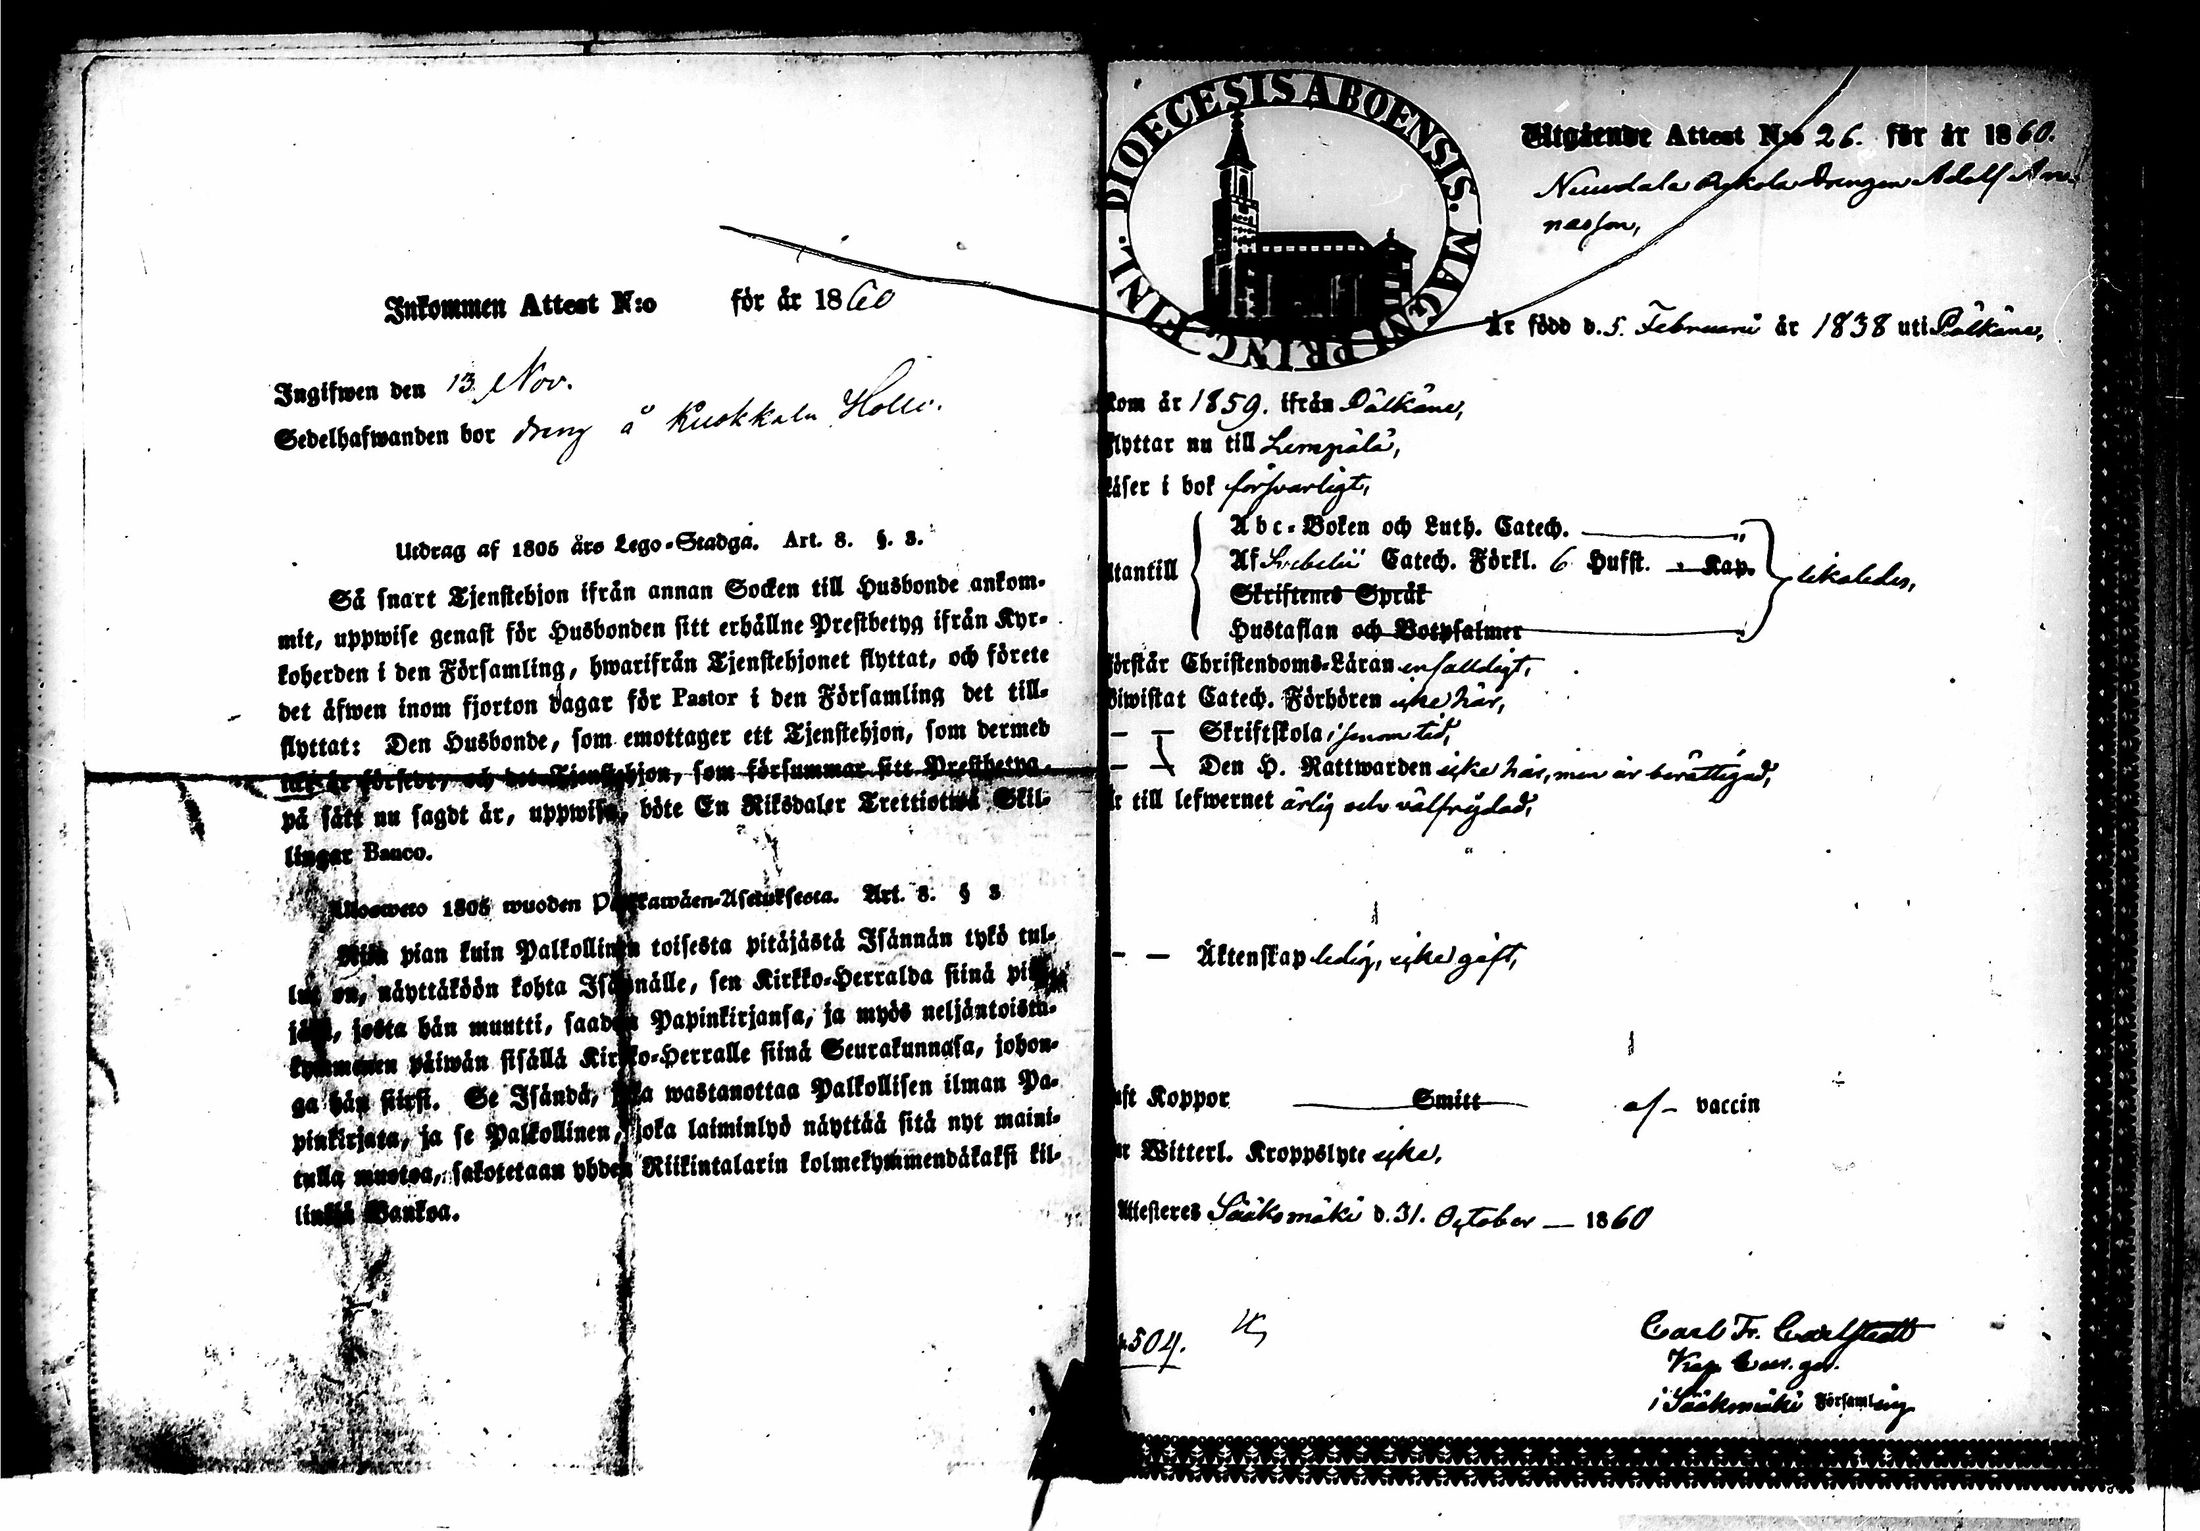 Inkommen Attest N:o för år 1860
Ingifwen den 13 Nov.
Sedelhafwanden bor dreng å Kuokkala Hollo.
Utdrag af 1805 års Lego-Stadga. Art. 8. §. 3.
Så snart Tjenstehjon ifrån annan Socken till Husbonde ankom-
mit, uppwise genast för Husbonden sitt erhållne Prestbetyg ifrån Kyr-
koherden i den Församling, hwarifrån Tjenstehjonet flyttat, och förete
det äfwen inom fjorton dagar för Pastor i den Församling det till-
flyttat: Den Husbonde, som emottager ett Tjenstehjon, som dermed
är försedt, och det Tjenstehjon, som försummar sitt Prestbetyg
på sätt nu sagdt är, uppwisa, böte En Riksdaler Trettiotwå Skil-
lingar Banco.
Uloswето 1805 wuoden Palkkawäen-Asetuksesta. Art. 8. § 3
Niin pian kuin Palkollinen toisesta pitäjästä Isännän tykö tul-
lut on, näyttäköön kohta Isännälle, sen Kirkko-Herralda siinä pitä-
jäsä, josta hän muutti, saadun Papinkirjansa, ja myös neljäntoista-
kymmenen päiwän sisällä Kirkko-Herralle siinä Seurakunnasa, johon-
ga hän siirsi. Se Isändä, joka wastanottaa Palkollisen ilman Pa-
pinkirjata, ja se Palkollinen, joka laiminlyö näyttää sitä nyt maini-
tulla muotoa, sakotetaan yhden Riikintalarin kolmekymmendäkaksi kil-
linkiä Bankoa.
DIOECESIS ABOENSIS. MAGNI PRINC. FINL.
Utgående Attest N:o 26. för år 1860.
drengen Adolf An-
nasson,
Är född d. 5. Februari år 1838 uti Pälkäne,
kom år 1859. ifrån Pälkäne,
flyttar nu till Lempälä,
läser i bok försvarligt,
Abc-Boken och Luth. Catech. "
utantill Af Svebelii Catech. Förkl. 6 Hufst. Kap. likaledes,
Skriftenes Språk
Hustaflan och Botpsalmer
förstår Christendoms-Läran enfalldigt,
biwistat Catech. Förhören icke här,
— — Skriftskola i sinom tid,
— — Den H. Nattwarden icke här, men är berättigad,
är till lefwernet ärlig och välfrejdad,
— — Äktenskap ledig, icke gift,
haft Koppor Smitt af — vaccin
har Witterl. Kroppslyte icke,
Attesteres Sääksmäki d. 31. October — 1860
504.
Carl Fr. Carlstedt
i Sääksmäki Församling